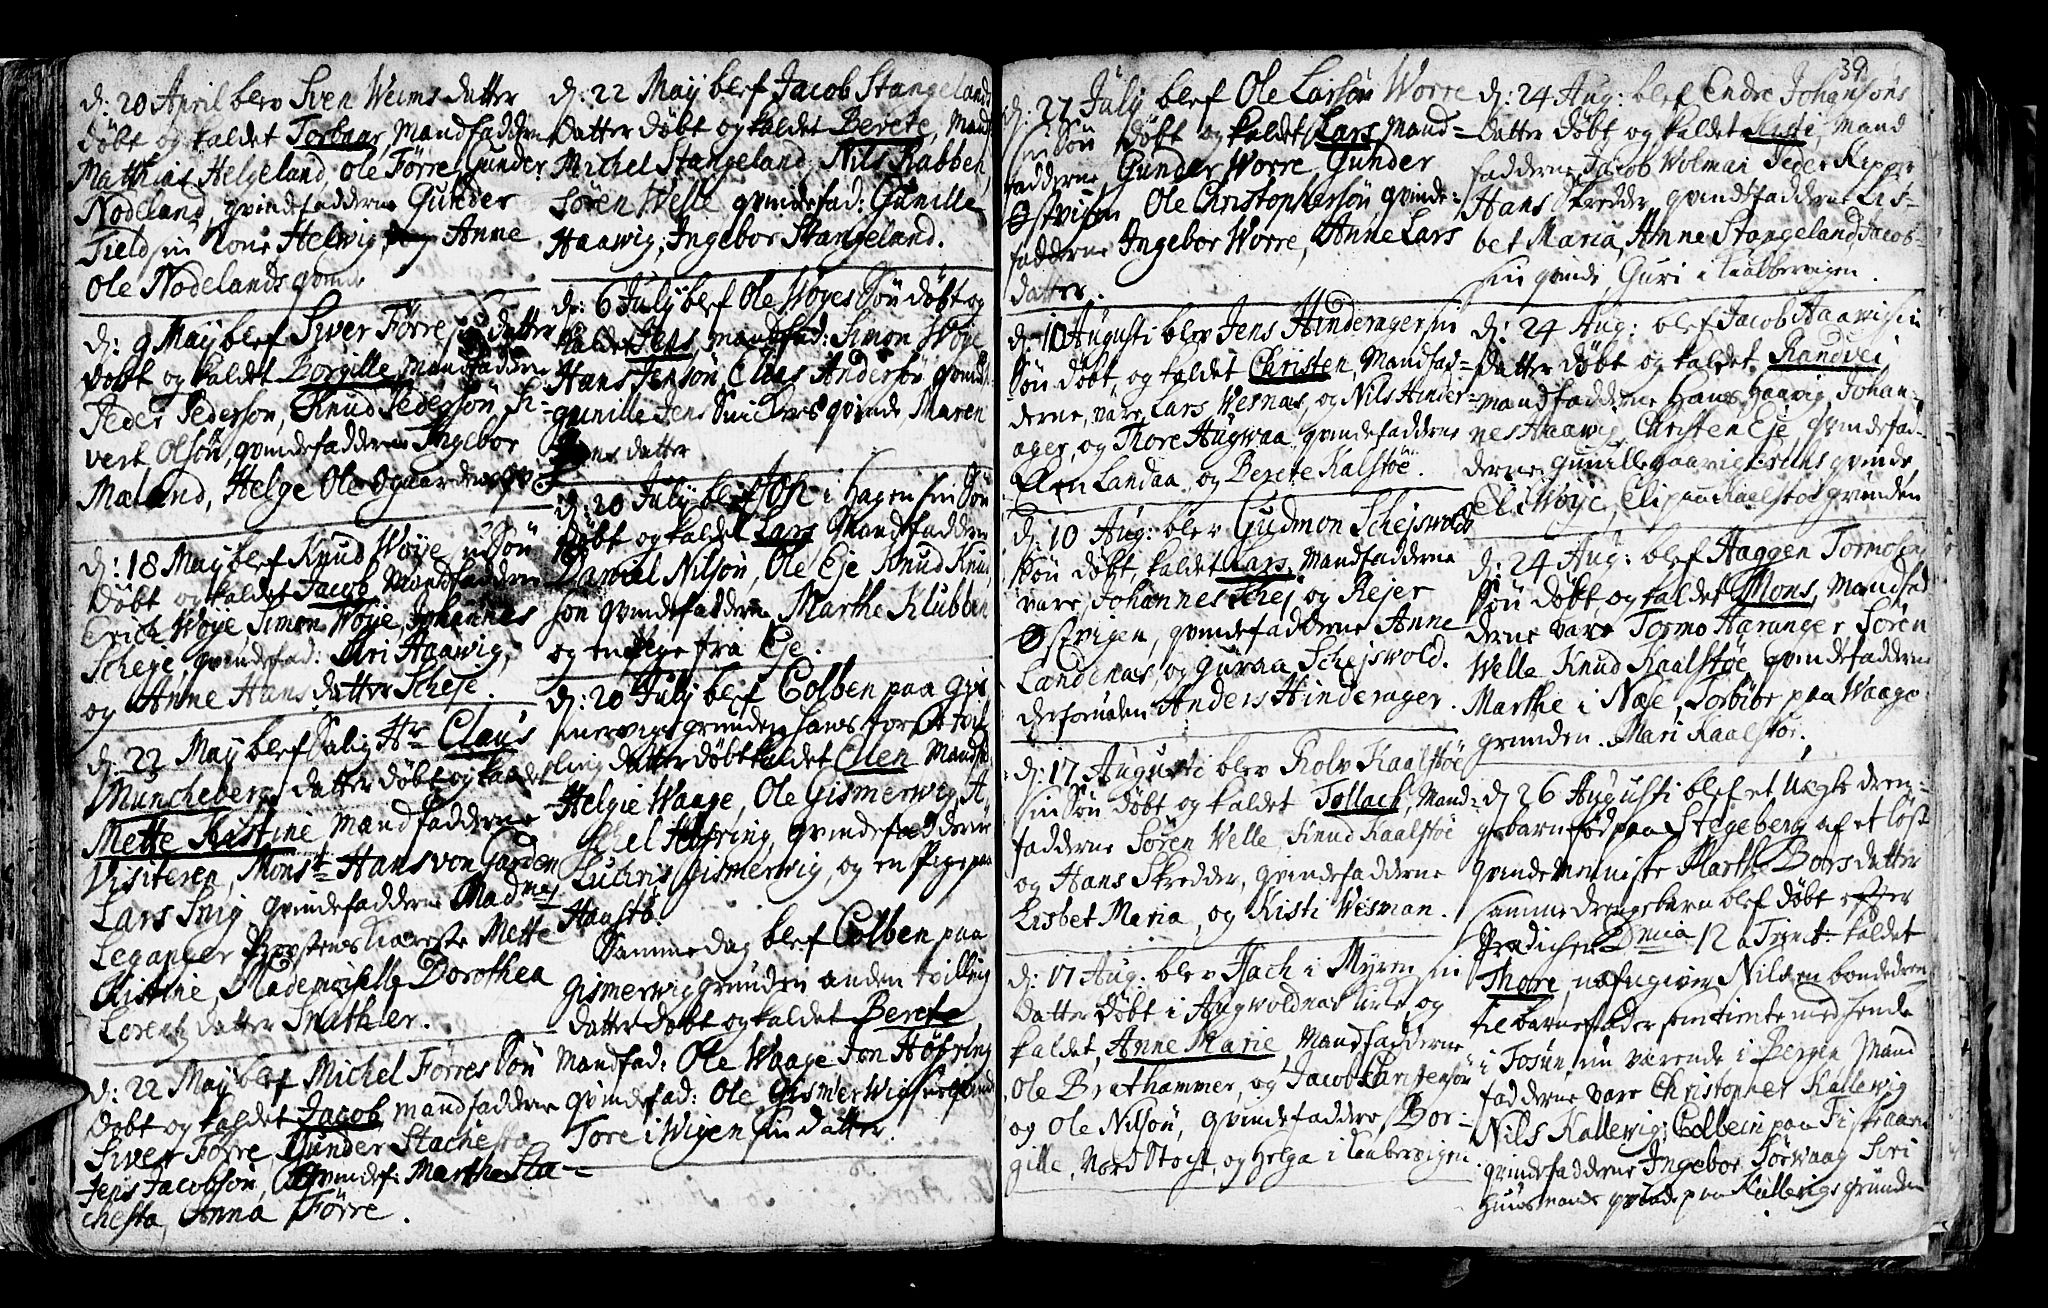 d: 20 April blev Sven Weims datter
døbt og kaldet Torbaar, Mandfaddern
Mathias Helgeland, ole Førre, Gunder
Nodeland, qvindefadderne Gunder
Field sin Kone Helwig, Anne
Ole Nodelands qvinde
d: 9 Maÿ blef Siver Førre datter
døbt og kaldet Borgille, mandfaddern
Peder Pederson, Knud Pedersøn, Si-
vert Olsøn, qvindefadderne Ingebor
Maland, Helge Ole Ogaardens
d: 18 Maÿ blef Knud Wøÿe Søn
døbt og kaldet Jacob Mandfaddern
Erich Wøÿe, Simon Wøÿe, Johannes
Scheje qvindefad: Siri Haawig,
og Anne Hans datter Scheje.
d: 22 Maÿ blef Salig Hr Claus
Müncheberg datter døbt og kaldet
Mette Kistine Mandfadderne
Visiteren, Monsr Hans von Garden
Lars Smig qvindefadderne Madme
Leganger Prostens Kiæreste Mette
Kistine, Mademoiselle Dorothea
Lorentz datter Snathler.
d: 22 Maÿ blef Michel Førres Søn
døbt og kaldet Jacob mandfadderne
Siver Førre, Gunder Stachesta
Jens Jacobsøn, qvindef: Marthe Sta-
chesta, Anna Førre.
d: 22 Maÿ blef Jacob Stangelands
datter døbt og kaldet Berete, Mand
Michel Stangeland, Nils Rabben
Søren Welle qvindefad: Gunille
Haawig, Ingebor Stangeland.
d: 6 Julÿ blef Ole Wøÿes Søn døbt og
kaldet Jens, mandfad: Simon Wøÿe
Hans Jensøn, Claas Andersøn qvind
gunille Jens Smideds qvinde, Maren
datter
d: 20 Julÿ blef Joh i Hagen sin Søn
døbt og kaldet Lars Mandfaddern
Daniel Nilsøn, Ole Eje Knud Knud
søn qvindefaddern Marthe Klubben
og en pige fra Eje.
d: 20 Julÿ blef Colben paa Gis
merwigs grunden hans første tvil
ling datter døbt kaldet Ellen Mandfad
Helgie Waage, Ole Gismerwig, A
xel Høÿring, qvindefadderne
Luchris Gismerwig, og en Pige paa
Haustø.
Samme dag blef Colben paa
Gismerwig grunden anden tvilling
datter døbt og kaldet Berete
Mandfad: Ole Waage Jon Høÿring
qvindefad: Ole Gismerwigs qvinde
Tore i Wigen sin datter.
39
d: 27 Julÿ blef Ole Larsøn Worre
sin Søn døbt og kaldet Lars, Mand=
fadderne Gunder Worre, Gunder
Østvigen Ole Christophersøn, qvinde=
fadderne Ingebor Worre, Anne Lars
datter.
d: 10 Augusti blev Jens Hinderager sin
Søn døbt, og kaldet Christen, Mandfad=
derne, vare, Lars Wesnas, og Nils Hinder=
ager, og Thore Hugwaa qvindefadderne
Elen Landaa og Berete Kalstøe.
d: 10 Aug: blev Gudmon Schejswold
Søn døbt, kaldet Lars, Mandfadderne
vare, Johannes Schej og Rejer
Østvigen, qvindefadderne Anne
Landenas, og guraa Schejswold.
desforuden Anders Hinderager.
d: 17 Augusti blev Rolv Kaalstøe
sin Søn døbt og kaldet Tollach, Mand=
fadderne Søren Welle, Knud Kaalstøe
og Hans Skredder, qvindefadderne
Lisbet Maria, og Kisti Wisman.
d: 17 Aug: blev Isach i Mÿren sin
datter døbt i Augwoldnas kirke og
kaldet, Anne Marie, Mandfadderne
Ole Brathammer, og Jacob Karstensøn
og Ole Nilsøn, qvindefaddere, Bor-
gille, Nord Stogt, og Helga i Kaabervigen
d: 24 Aug: blef Endre Johansøns
datter døbt og kaldet Kisti, Mand
fadderne Jacob Wolman Peder Reper
Hans Skredder, qvindfadderne Lis=
bet Maria, Anne Stangeland Jacob=
sin qvinde, Guri i Kaabbervigen.
d: 24 Aug: blef Jacob Haawig sin
datter døbt og kaldet Randvei
mandfadderne Hans Haavig, Johan-
nes Haawig Christen Eje, qvindefad-
derne, Gunille Haavig Ivens qvinde
Eli Wøÿe, Eli paa Kaalstøe grunden
d: 24 Aug: blef Haggen Tormosens
Søn døbt, og kaldet Mons, Mandfad
derne vare Tormo Haranger, Søren
Welle Knud Kaalstøe, qvindefaddern
Marthe i Næse, Torbiør paa Waage
grunden. Mari Kaalstøe.
d 26 Augusti blef et uegte dren=
gebarn fød paa Stegeberg af et løst
qvindemenniste Marthe Boers datter
samme drengebarn blef døbt efter
Prædichen Dnica 12 a Trinit: kaldet
Thore, udgiver Nils en bondedreng
til barnefader som tiente med hende
i Fosun, nu værende i Bergen Mand
fadderne vare Christopher Kallewig
Nils Kallevig, Colbein paa Fiskaaen
qvindefadderne Ingebor Sørwaag Siri
Huusmands qvinde paa Kallevigs grunden